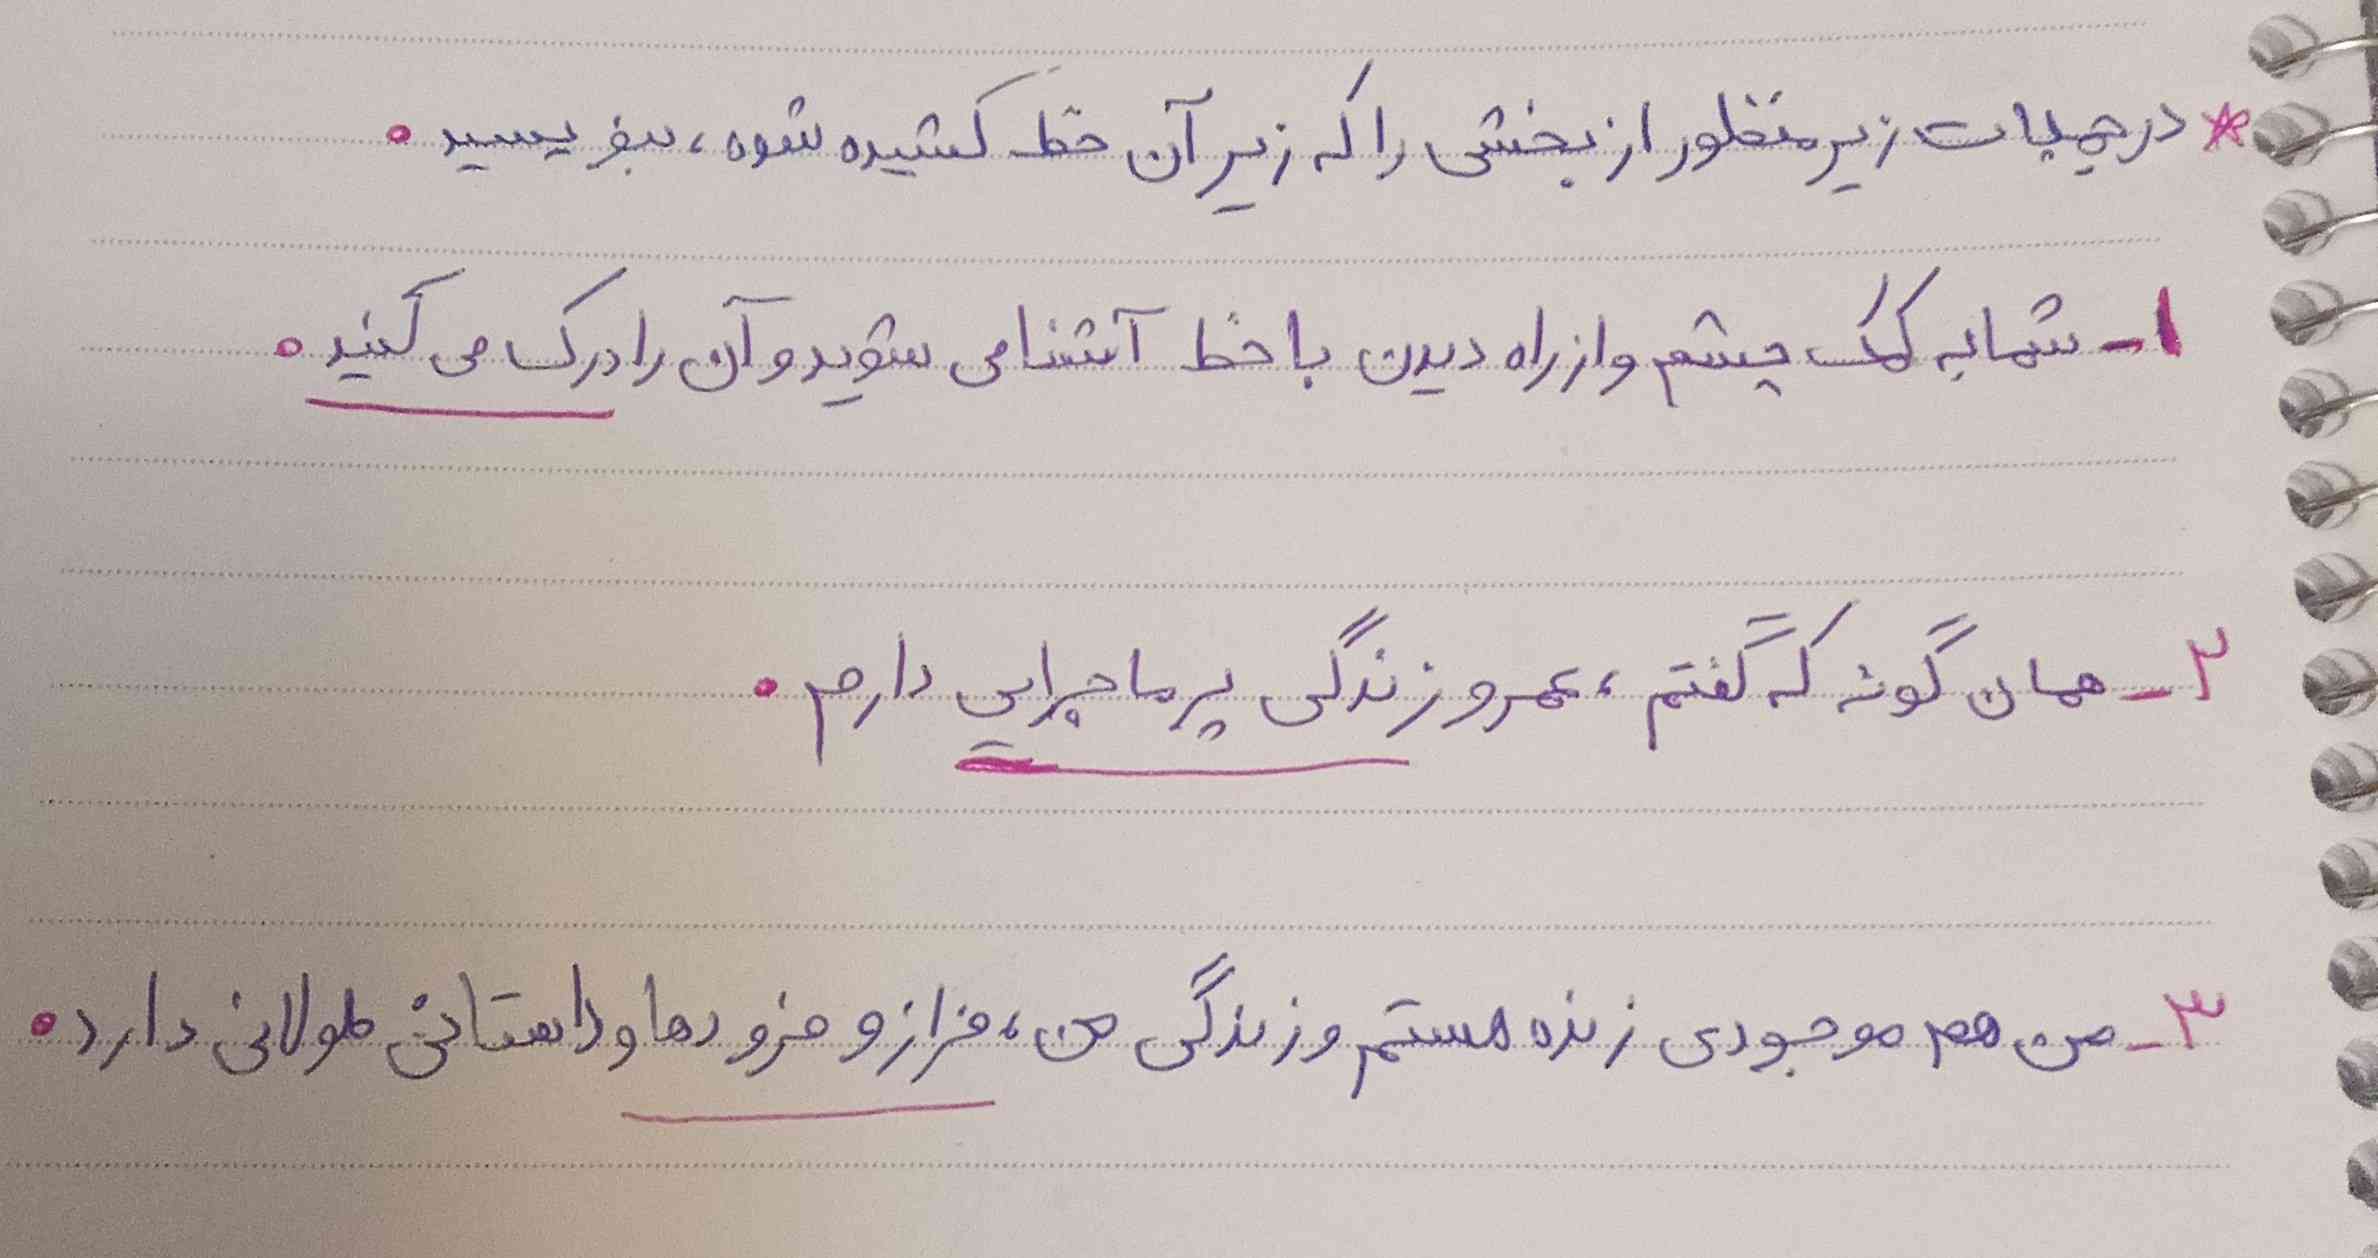 * در جملات زیر منظور از بخشی را که زیر آن خط کشیده شده، بنویسید.
۱- شما به کمک چشم و از راه دیدن با خط آشنا می شوید و آن را درک می کنید.
۲- همان گونه که گفتم، عمر و زندگی پر ماجرایی دارم.
۳- من هم موجودی زنده هستم و زندگی من، فراز و فرودها و داستانی طولانی دارد.